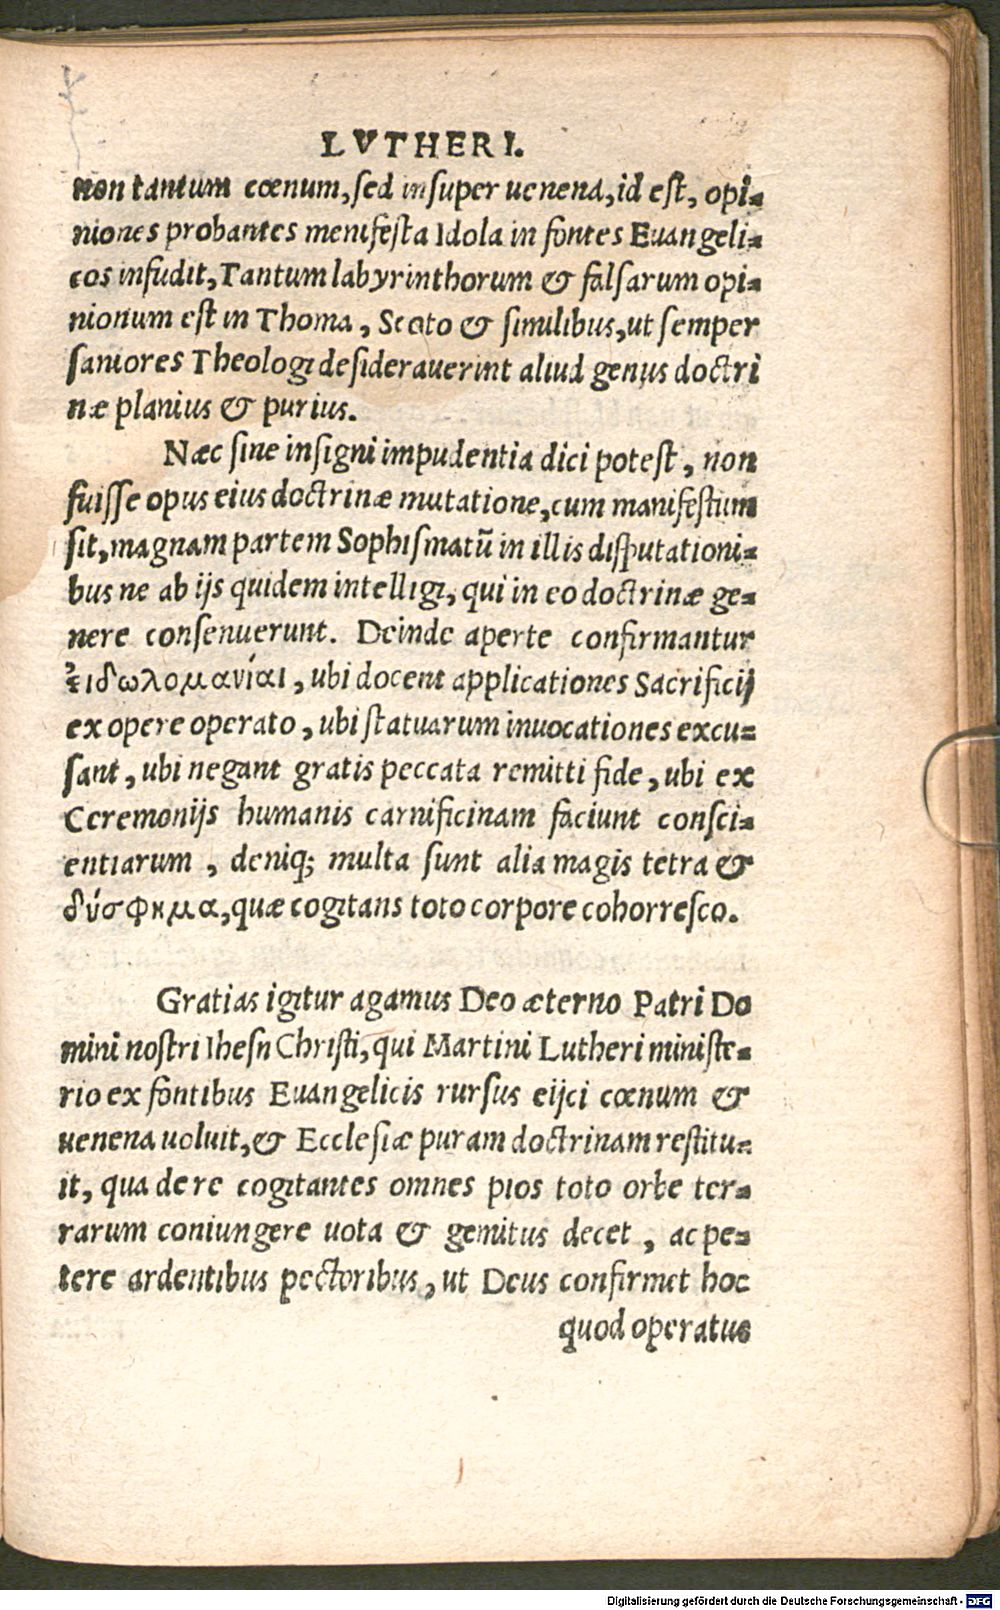 LVTHERI.
non tantum cœnum, sed insuper uenena, id est, opi-
niones probantes menifesta Idola in fontes Euangeli-
cos infudit, Tantum labyrinthorum & falsarum opi-
nionum est in Thoma, Scoto & similibus, ut semper
saniores Theologi desiderauerint aliud genus doctri
næ planius & purius.
Næc sine insigni impudentia dici potest, non
fuisse opus eius doctrinæ mutatione, cum manifestum
sit, magnam partem Sophismatũ in illis disputationi-
bus ne ab ijs quidem intelligi, qui in eo doctrinæ ge-
nere consenuerunt. Deinde aperte confirmantur
ἐιδωλομανίαι, ubi docent applicationes Sacrificij
ex opere operato, ubi statuarum inuocationes excu-
sant, ubi negant gratis peccata remitti fide, ubi ex
Ceremonijs humanis carnificinam faciunt consci-
entiarum, deniq; multa sunt alia magis tetra &
δύσφημα, quæ cogitans toto corpore cohorresco.
Gratias igitur agamus Deo æterno Patri Do
mini nostri Ihesn Christi, qui Martini Lutheri ministe-
rio ex fontibus Euangelicis rursus eijci cœnum &
uenena uoluit, & Ecclesiæ puram doctrinam restitu-
it, qua de re cogitantes omnes pios toto orbe ter-
rarum coniungere uota & gemitus decet, ac pe-
tere ardentibus pectoribus, ut Deus confirmet hoc
quod operatus
Digitalisierung gefördert durch die Deutsche Forschungsgemeinschaft - DFG